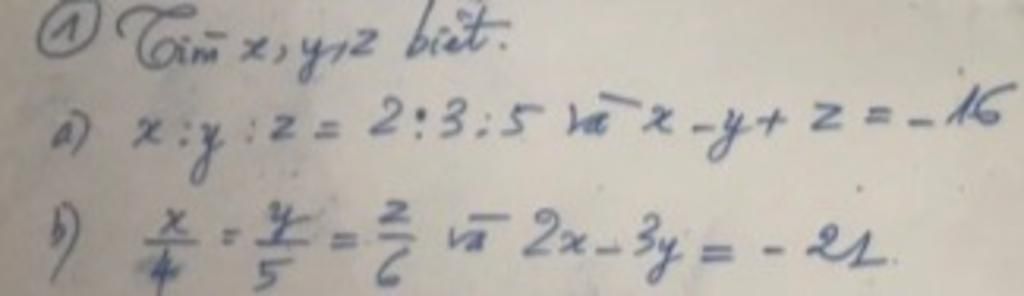 ① Tìm x, y, z biết.
a) x : y : z = 2 : 3 : 5 và x - y + z = - 16
b) x/4 = y/5 = z/6 và 2x - 3y = - 21.